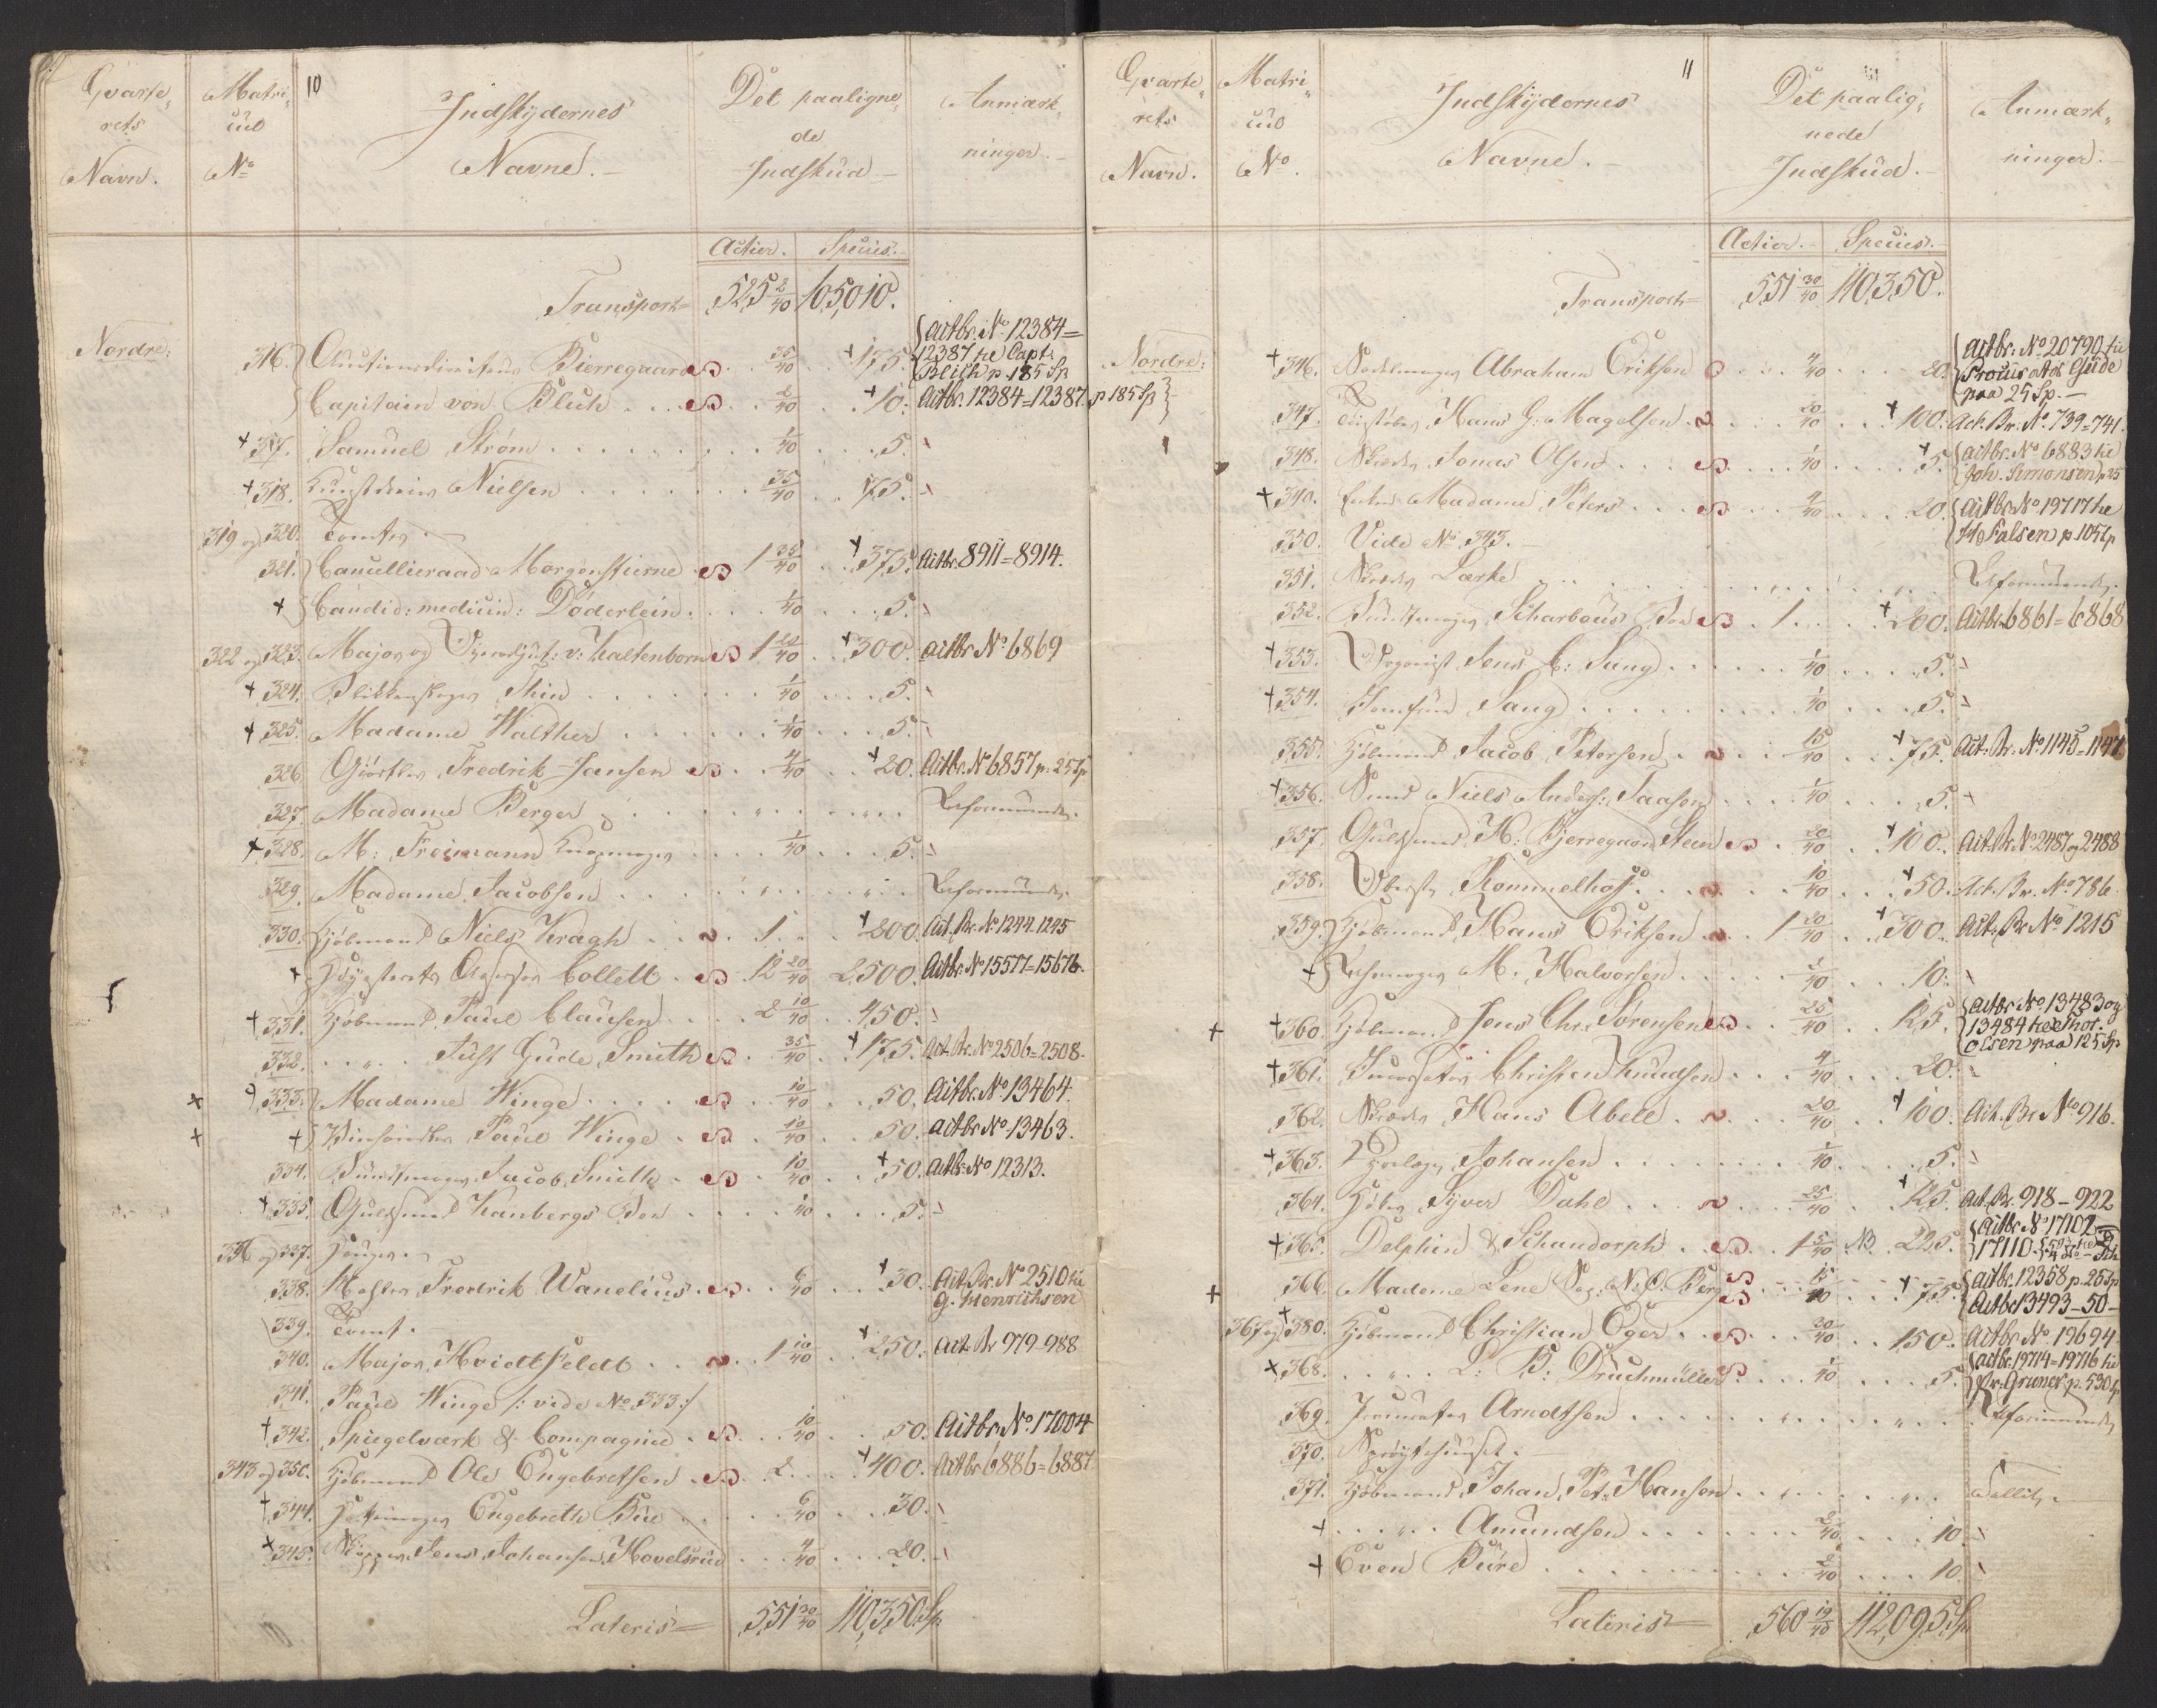 10
Qvarte,
rets
Navn.
Matri,
cul
No
Indskydernes
Navne.
Det paaligne,
de
Indskud
Anmærk,
ninger.
Actier. Species.
Transport= 525 2/40 105,010.
Nordre:
316. Auctionsdirecteur Bierregaard 35/40 + 175. Actbr. No 12384= 12387 til Capt: Blich p 185 Sp
Capitain von Blich 2/40 + 10. Actbr. 12384=12387. p 185 Sp
+ 317. Samuel Strøm 1/40 5.
+ 318. Kunstdreier Nielsen 35/40 175.
319 og 320. Tomter.
321. Cancellieraad Morgenstierne 1 35/40 + 375. Actbr. 8911=8914.
+ Candid: medicin: Döderlein 1/40 5.
322 og 323. Major og v: Kaltenborn 1 20/40 + 300. Actbr No 6869
+ 324. Blikkenslager Thin 1/40 5.
+ 325. Madame Walther 1/40 5.
326. Giørtler Fredrik Jansen 4/40 + 20. Actbr. No 6857 p. 25 Sp
327. Madame Berger Uformuende.
+ 328. M: Freimann Knapmager 1/40 5.
329. Madame Jacobsen Uformuende.
330. Kjøbmand Niels Kragh 1 + 200. Act. Br. No 1244. 1245
+ Assessor Collett 12 20/40 2500. Actbr. No 15577=15676.
+ 331. Kjøbmand Paul Clausen 2 10/40 450.
332. " Just Gude Smith 35/40 + 175. Act. Br. No 2506=2508.
333. Madame Winge 10/40 50. Actbr. No 13464.
+ Paul Winge 10/40 50. Actbr No 13463.
334. Buntmager Jacob Smith 10/40 + 50. Actbr. No 12313.
+ 335. Guldsmed Kanbergs Boe 1/40 5.
336 og 337. Hauger.
338. Mester Fredrik Wanelius 6/40 + 30. Act. Br. No 2510 til G. Henrichsen
339. Tomt.
340. Major Hvidtfeldt 1 10/40 + 250. Act. Br 979-988
341. Paul Winge /: vide No 333:/
+ 342. Spiegelværk & Compagnie 10/40 50. Actbr. No 17004
343 og 350. Kjøbmand Ole Engebretsen 2 + 400. Actbr 6886=6887.
+ 344. Engebreth Bue 6/40 30.
+ 345. Skipper Jens Johansen Hovelsrud 4/40 20.
Lateris= 551 30/40 110,350. Sp
11
Qvarte,
rets
Navn.
Matri,
cul
No.
Indskydernes
Navne.
Det paalig,
nede
Indskud.
Anmærk,
ninger.
Actier. Species.
Transport= 551 30/40 110,350.
Nordre:
+ 346. Sadelmager Abraham Eriksen 4/40 20. Actbr: No 20790 til Provis Ade Gude paa 25 Sp.
347. Hans G: Magelsen 20/40 + 100. Act. Br. No 739=741.
348. Skræder Jonas Olsen 1/40 + 5. Actbr. No 6883 til Joh. Simonsen p 25
+ 349. Enke Madame Peters 4/40 20. Actbr No 19717 til H Falsen p 105 Sp
350. Vide No 343.
351. Skræder Lærke Uformuende.
352. Buntmager Scharbous Boe 1 + 200. Actbr. 6861=6868
+ 353. Organist Jens C: Sang 1/40 5.
+ 354. Jomfrue Sang 1/40 5.
355. Kjøbmand Jacob Petersen 15/40 + 75. Act. Br. No 1145=1147
+ 356. Smed Niels Anders: Saasen 1/40 5.
357. Guldsmed H. Bjerregaard Steen 20/40 + 100. Act. Br. No 2487 og 2488
358. Oberst Rommelhoff 10/40 + 50. Act. Br. No 786.
359. Kjøbmand Hans Eriksen 1 20/40 + 300. Act. Br No 1215
+ M. Halvorsen 2/40 10.
+ 360. Kjøbmand Jens Chr. Sørensen 25/40 125. Actbr No 13483 og 13484 til Thor. Olsen paa 125 Sp
+ 361. Christen Knudsen 4/40 20.
362. Skræder Hans Abell 20/40 + 100. Act. Br No 916.
+ 363. Johansen 1/40 5.
364. Høker Syver Dahl 25/40 + 125. Act. Br. 918-922
+ 365. Delphin & Schandorph 1 5/40 NB 225. Actbr No 17107 17110
366. Madame Lene Sal: N. O. Berg 15/40 + 75. Actbr. 12358 p. 25 Sp Actbr 13493-50-
367 og + 380. Kjøbmand Christian Eger 30/40 150. Actbr No 19694
+ 368. " L: B: Druchmüller 1/40 5. Actbr. 19714=19716 til Pr. Gruner p. 530 Sp
369. Procurator Arndtsen Uformuende
370. Sprøytehuuset.
371. Kjøbmand Johan Pet: Hansen Fallit.
+ " Amundsen 2/40 10.
+ Even Bure 2/40 10.
Lateris= 560 19/40 112,095 Sp